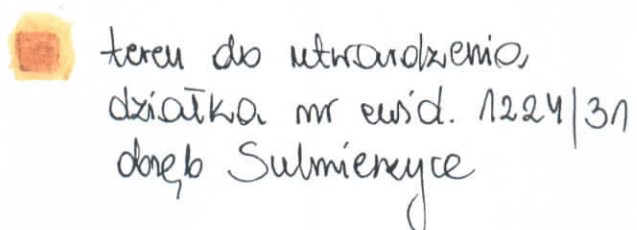 teren do utwardzenia,
działka nr ewid. 1224/31
obręb Sulmierzyce